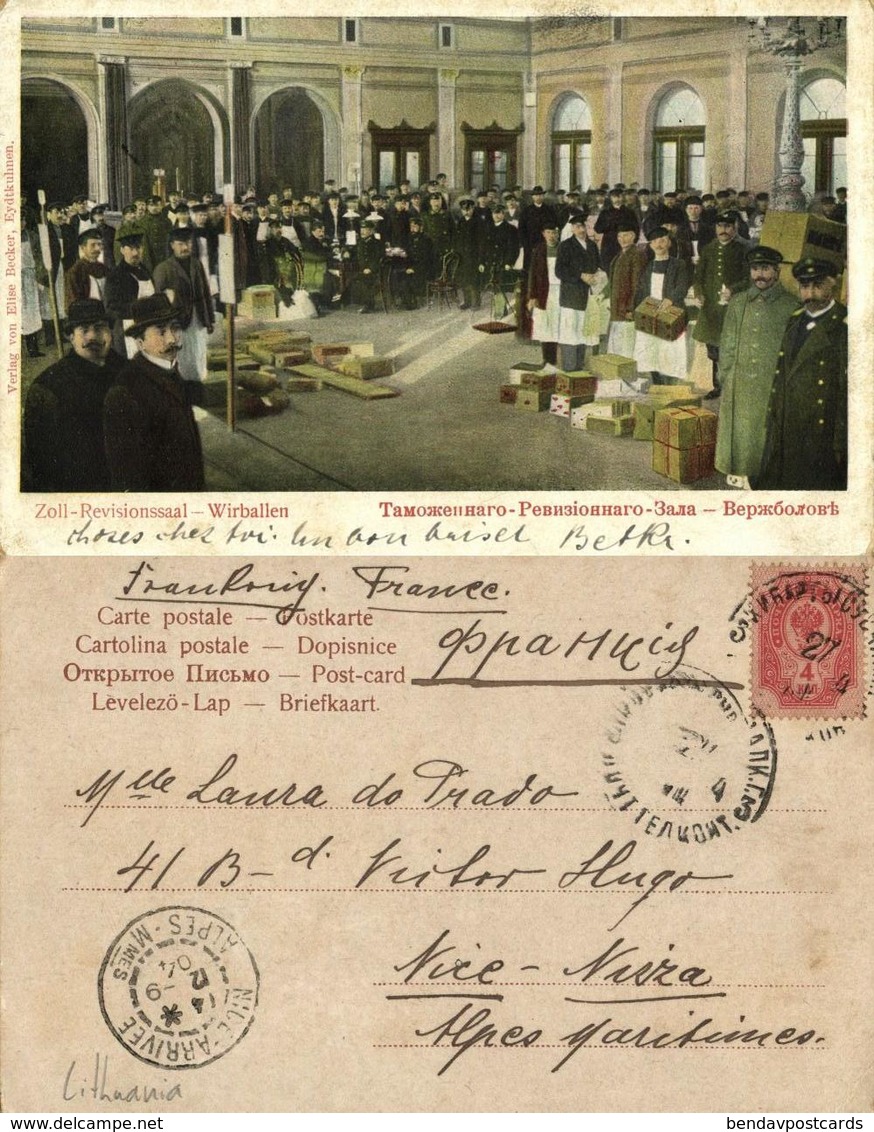 Verlag von Elise Becker, Eydtkuhnen.
Zoll-Revisionssaal – Wirballen
Таможеннаго-Ревизіоннаго-Зала – Вержболовѣ
choses chez toi. Un bon baiser
France.
Carte postale — Postkarte
Cartolina postale — Dopisnice
Франція
Открытое Письмо — Post-card
Levelező-Lap — Briefkaart.
4
27
4
Mlle Laura do Prado
41 B-d. Victor Hugo
Nice - Nizza
Alpes Maritimes.
NICE-ARRIVÉE
ALPES-MMES
04
Lithuania
www.delcampe.net
bendavpostcards